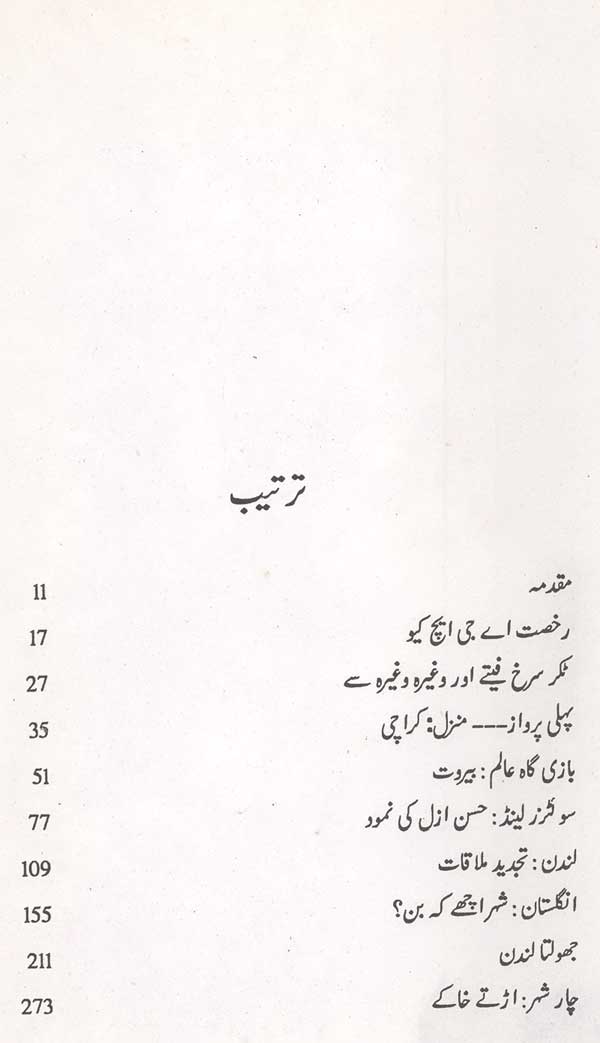 ترتیب
مقدمہ 11
رخصت اے جی ایچ کیو 17
ٹکر سرخ فیتے اور وغیرہ وغیرہ سے 27
پہلی پرواز--- منزل: کراچی 35
بازی گاہ عالم: بیروت 51
سوئٹزرلینڈ: حسن ازل کی نمود 77
لندن: تجدید ملاقات 109
انگلستان: شہر اچھے کہ بن؟ 155
جھولتا لندن 211
چار شہر: اڑتے خاکے 273